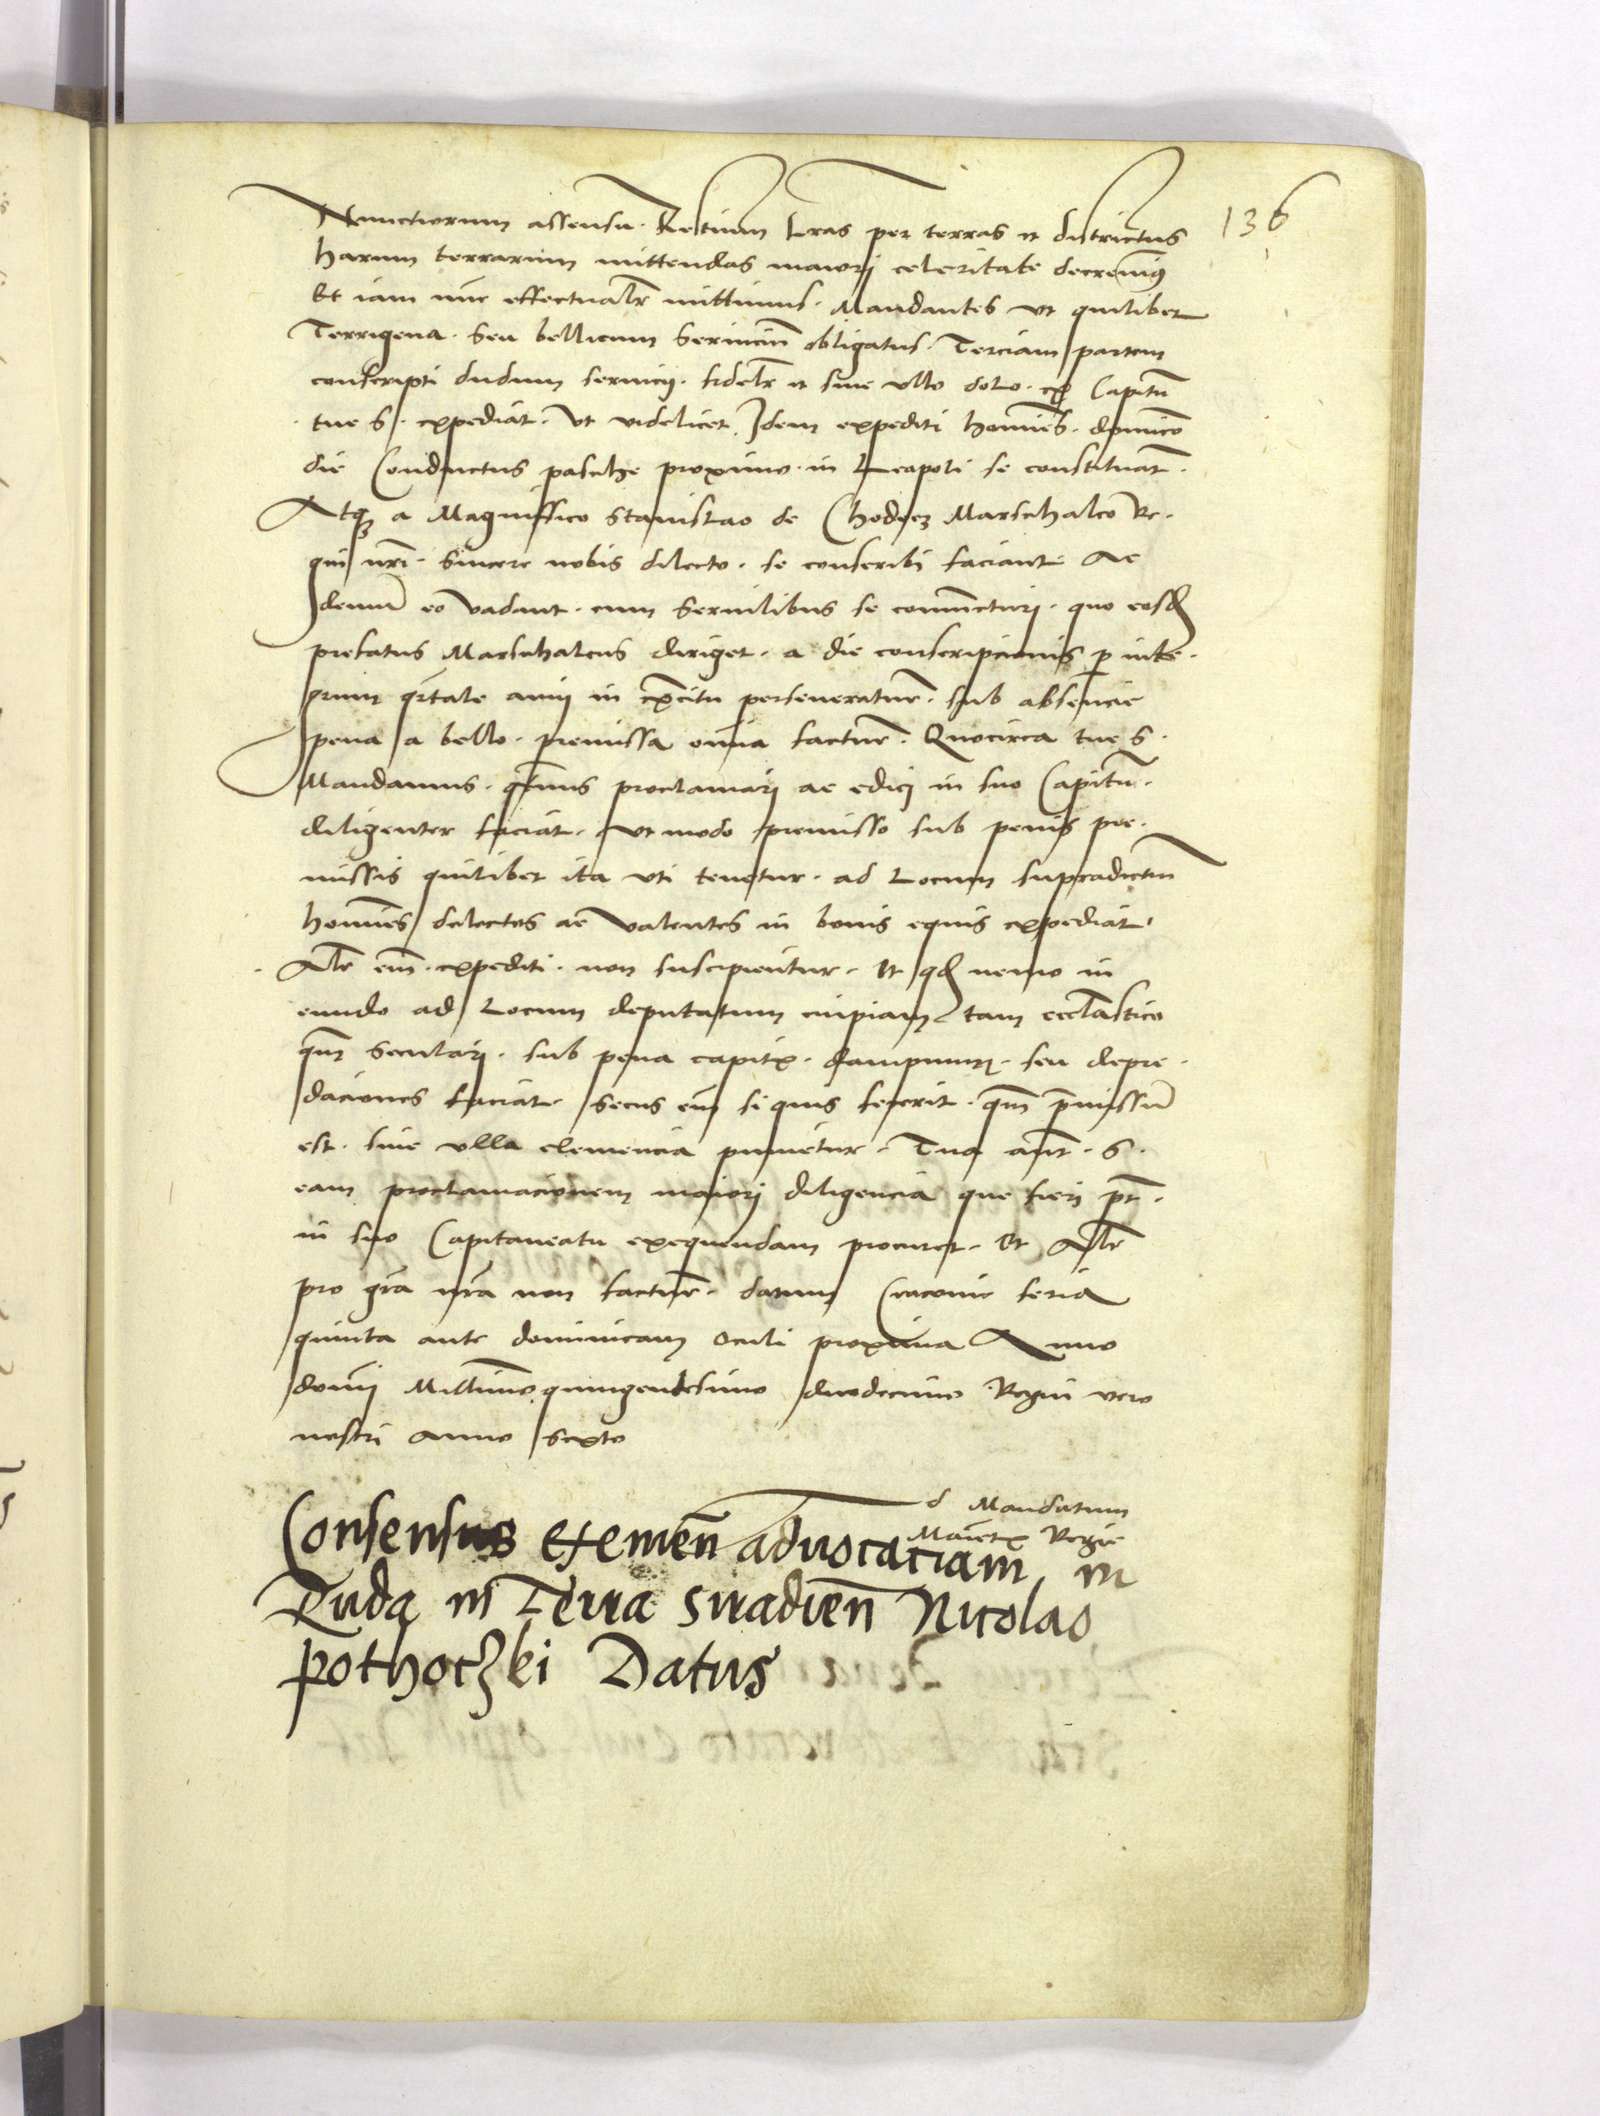 136
Nunctiorum assensu. Restium lras per terras et districtus
harum terrarum mittendas maiori celeritate decrevimus
Et iam nunc effectualr mittimus. Mandantes ut quilibet
Terrigena. seu bellicum servicium obligatus. Terciam partem
conscripti dudum servicij. fidelr et sine ullo dolo. ex Capitu
tue S. expediat. ut videlicet Idem expediti homines. dominico
die Conductus pasche proximo. in Leopoli se constituant.
Atque a Magniffico Stanislao de Chodecz Marschalco Re-
gni nri. sincere nobis dilecto. se conscribi faciant. Ac
demum eo vadant. cum servilibus se coniuncturi. quo eosdem
prefatus Marschalcus diriget. a die conscripcionis per inte-
grum qrtale anni in exercitu perseveraturi. sub absencie
pena a bello. premissa omnia facturi. Quocirca tue S.
Mandamus. qtenus proclamari ac edici in suo Capitu.
diligenter faciat. ut modo premisso sub penis pre-
missis quilibet ita uti tenetur. ad Locum supradictum
homines delectos ac valentes in bonis equis expediat.
Alr em. expediti. non suscipientur. Et quod nemo in
eundo ad Locum deputatum cuipiam tam ecclastico
quam seculari. sub pena capitis. dampnum. seu depre-
daciones faciat. secus em si quis fecerit. quam premissum
est. sine ulla clemencia punietur. Tua aut. S.
eam proclamacionem maiori diligencia que fieri pot.
in suo Capitaneatu exequendam procuret. Et Alr
pro gra nra non factur. datum Cracovie feria
quinta ante dominicam Oculi proxima Anno
domini Millimo quingentesimo duodecimo Regni vero
nostri anno sexto
d Mandatum
Maiettis Regie
Consensus exemen advocaciam in
Ruda in Terra Siradien Nicolao
Pothoczki Datus